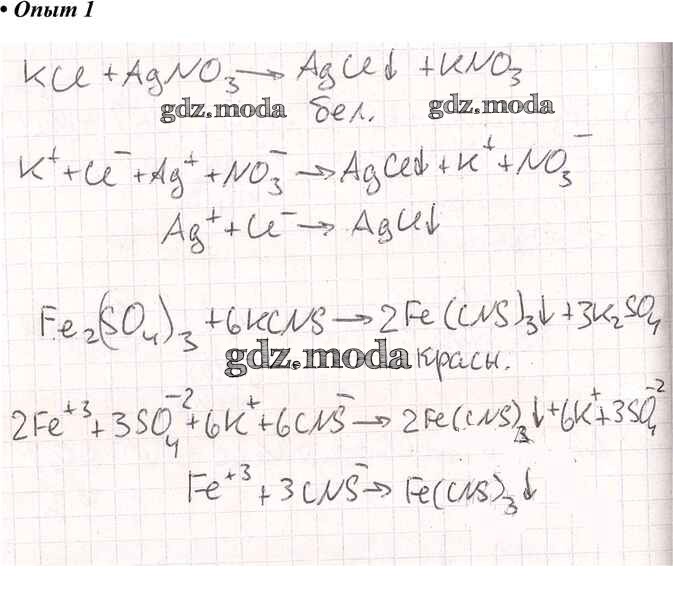 • Опыт 1
KCl + AgNO₃ → AgCl↓ + KNO₃
gdz.moda бел. gdz.moda
K⁺ + Cl⁻ + Ag⁺ + NO₃⁻ → AgCl↓ + K⁺ + NO₃⁻
Ag⁺ + Cl⁻ → AgCl↓
Fe₂(SO₄)₃ + 6KCNS → 2Fe(CNS)₃↓ + 3K₂SO₄
gdz.moda красн.
2Fe⁺³ + 3SO₄⁻² + 6K⁺ + 6CNS⁻ → 2Fe(CNS)₃↓ + 6K⁺ + 3SO₄⁻²
Fe⁺³ + 3CNS⁻ → Fe(CNS)₃↓